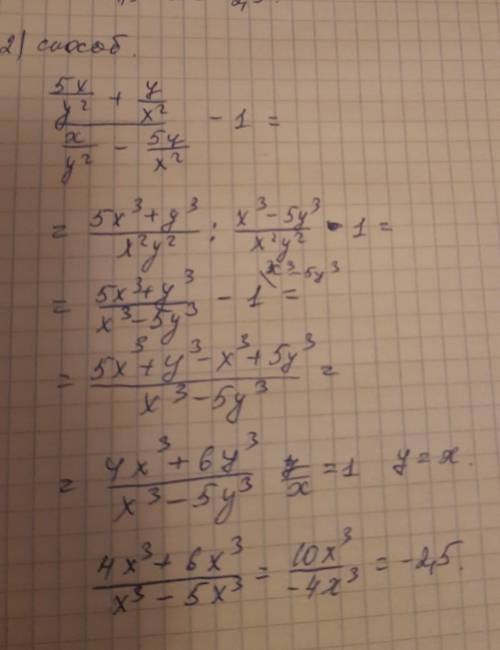 2) способ.
(5x/y² + y/x²)/(x/y² − 5y/x²) − 1 =
= (5x³+y³)/(x²y²) : (x³−5y³)/(x²y²) − 1 =
= (5x³+y³)/(x³−5y³) − 1 \x³−5y³ =
= (5x³+y³−x³+5y³)/(x³−5y³) =
= (4x³+6y³)/(x³−5y³) y/x = 1 y = x.
(4x³+6x³)/(x³−5x³) = 10x³/−4x³ = −2,5.